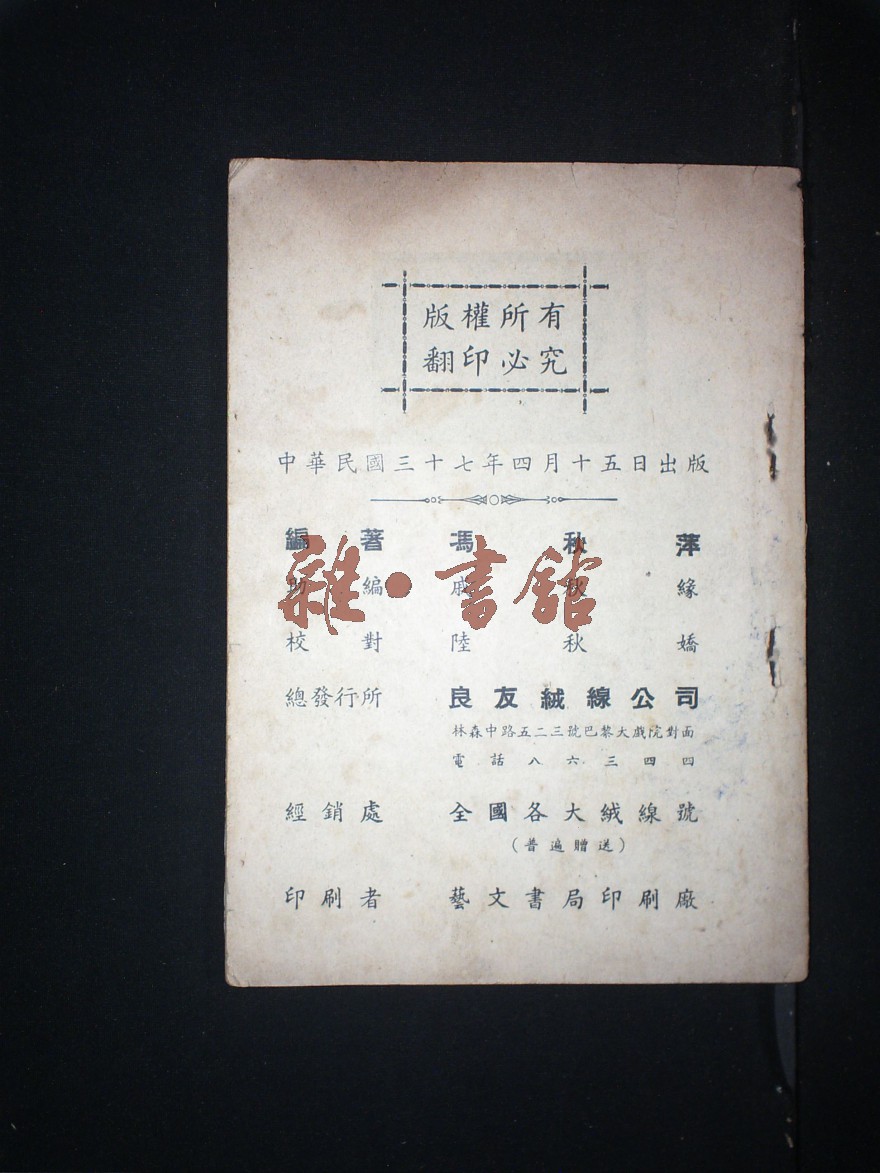 版權所有
翻印必究
中華民國三十七年四月十五日出版
編著 馮秋萍
助編 戚秋緣
校對 陸秋嬌
總發行所 良友絨線公司
林森中路五二三號巴黎大戲院對面
電話八六三四四
經銷處 全國各大絨線號
(普遍贈送)
印刷者 藝文書局印刷廠
雜·書館